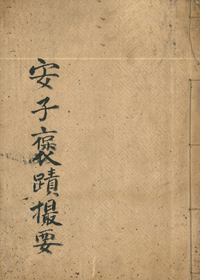 安子褒蹟撮要